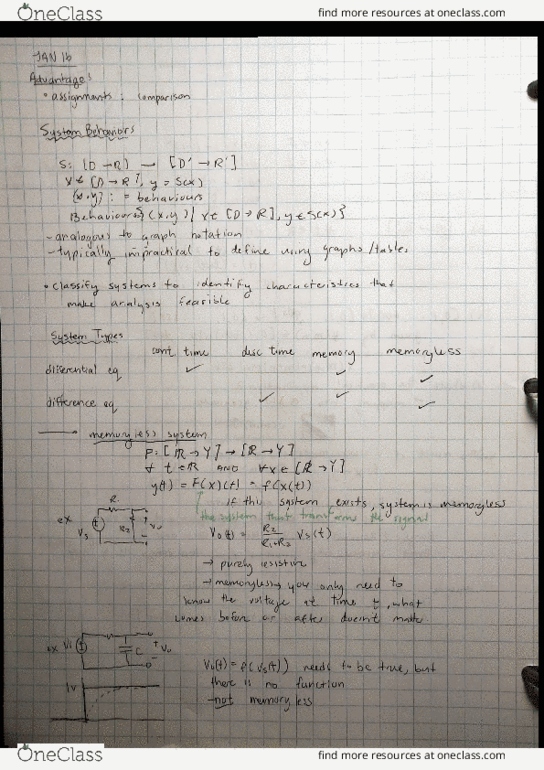 OneClass
find more resources at oneclass.com
JAN 16
Advantage:
• assignments : comparison
System Behaviors
S: [D→R] → [D'→R']
x ∈ [D→R], y = S(x)
(x,y) : = behaviours
Behaviours {(x,y) | x ∈ [D→R], y ∈ S(x)}
- analogous to graph notation
- typically impractical to define using graphs/tables
• classify systems to identify characteristics that
make analysis feasible
System Types
cont time disc time memory memoryless
differential eq ✓ ✓ ✓
difference eq ✓ ✓ ✓
memoryless system
F: [R→Y] → [R→Y]
∀ t ∈ R AND ∀x ∈ [R→Y]
y(t) = F(x)(t) = f(x(t))
if this system exists, system is memoryless
the system that transform the signal
ex Vs R1 R2 Vo
Vo(t) = R2/R1+R2 Vs(t)
→ purely resistive
→ memoryless, you only need to
know the voltage at time t, what
comes before or after doesn't matter
ex Vi C Vo
Vo(t) = f(Vs(t)) needs to be true, but
there is no function
1v
- not memoryless
OneClass
find more resources at oneclass.com